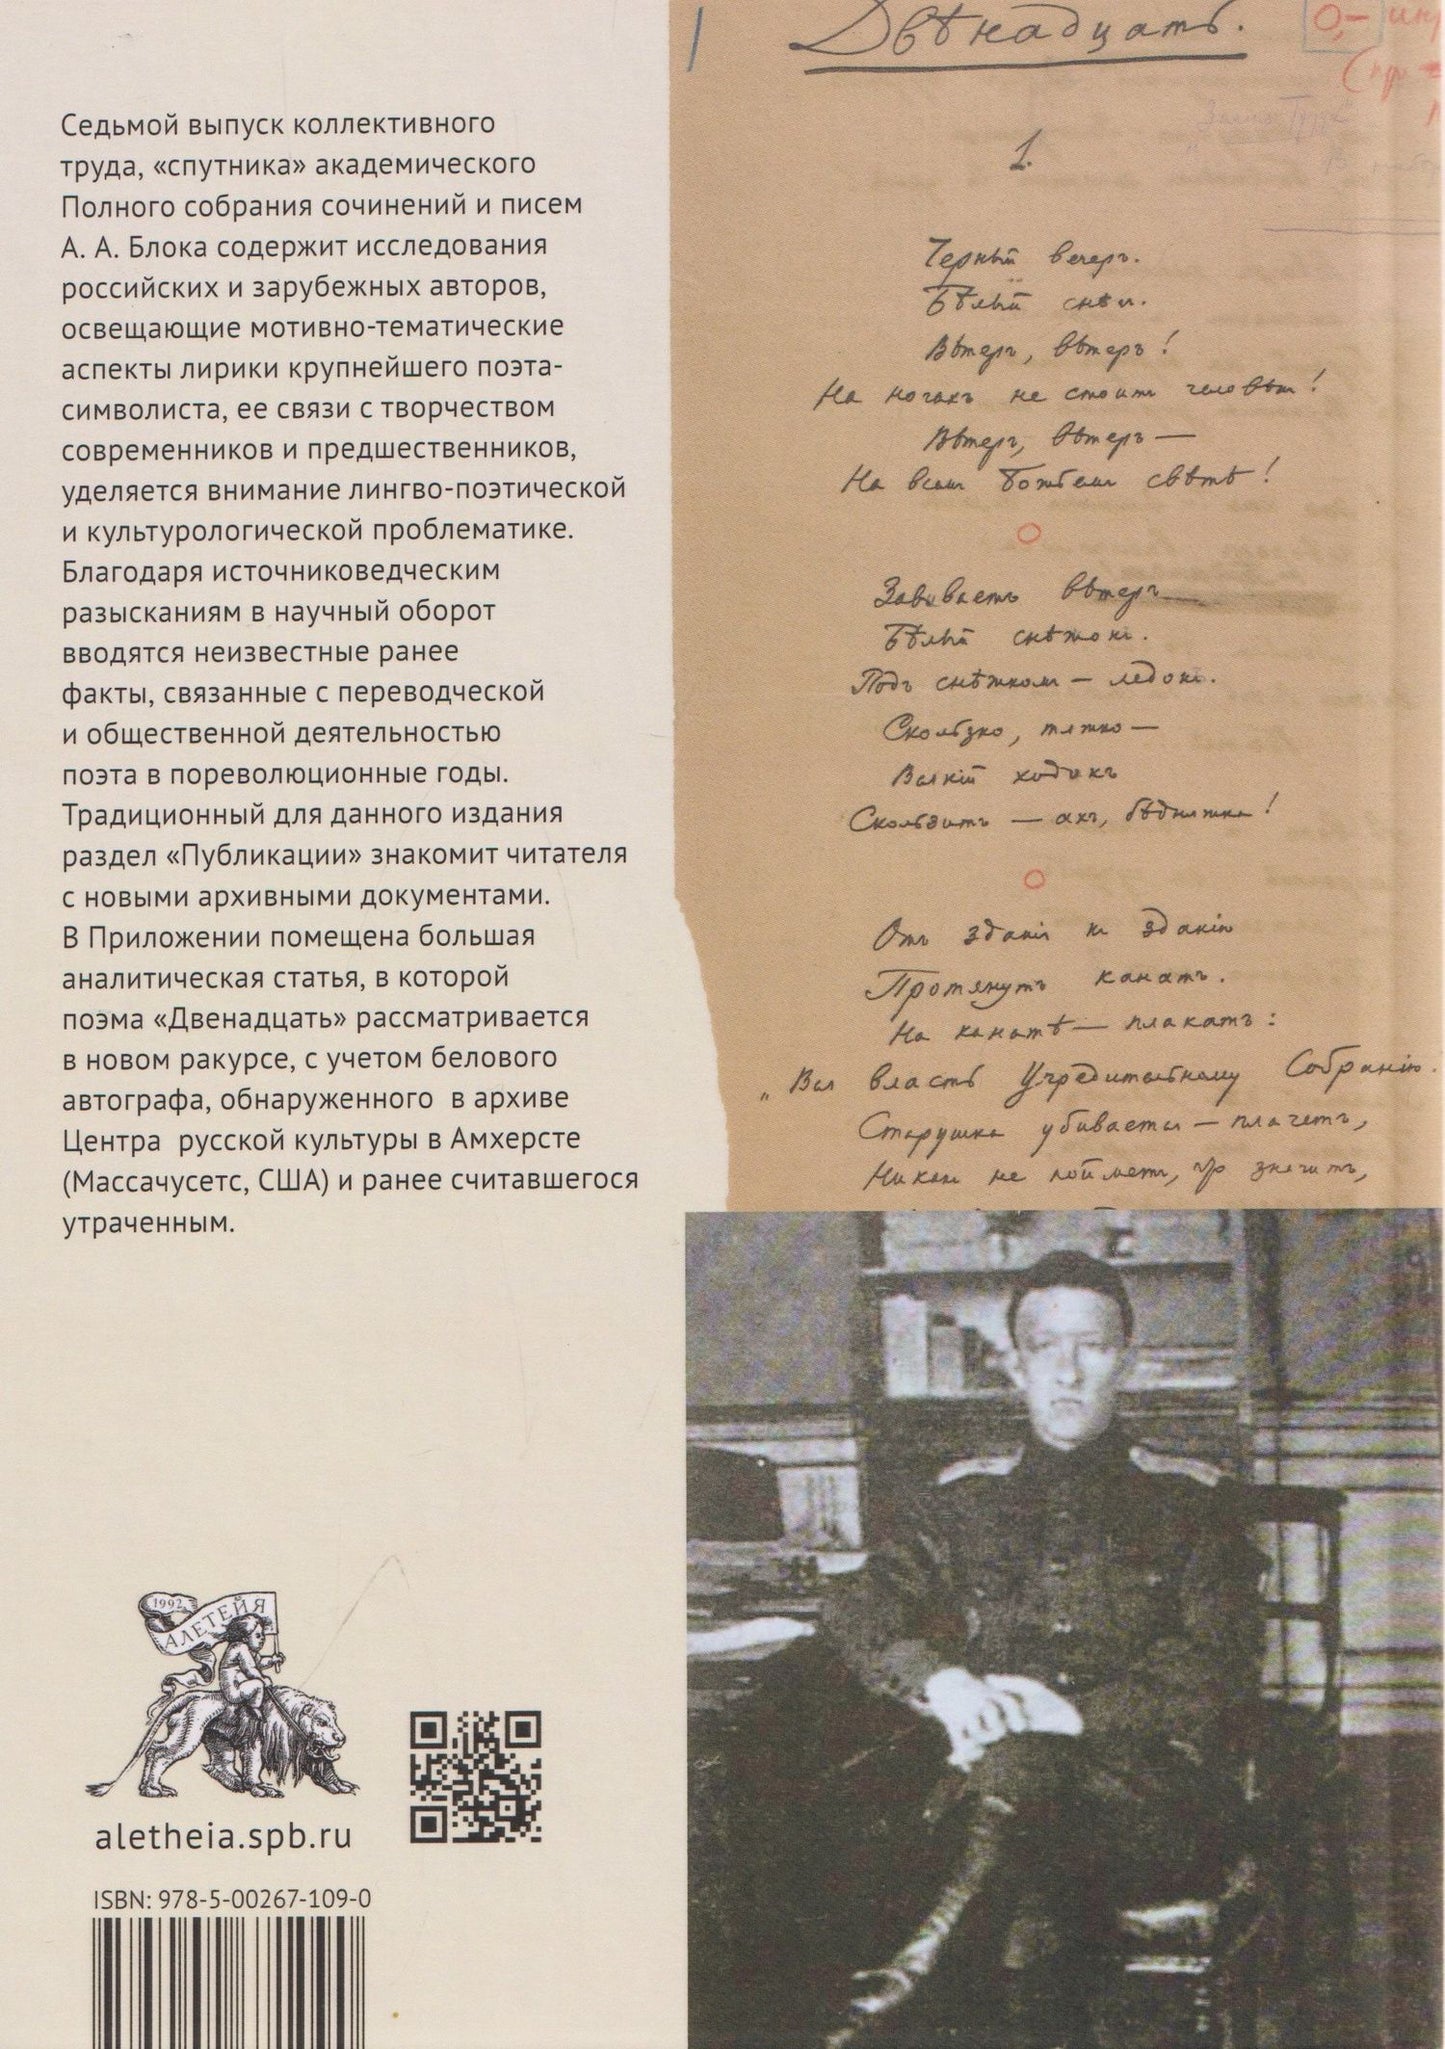 Седьмой выпуск коллективного
труда, «спутника» академического
Полного собрания сочинений и писем
А. А. Блока содержит исследования
российских и зарубежных авторов,
освещающие мотивно-тематические
аспекты лирики крупнейшего поэта-
символиста, ее связи с творчеством
современников и предшественников,
уделяется внимание лингво-поэтической
и культурологической проблематике.
Благодаря источниковедческим
разысканиям в научный оборот
вводятся неизвестные ранее
факты, связанные с переводческой
и общественной деятельностью
поэта в пореволюционные годы.
Традиционный для данного издания
раздел «Публикации» знакомит читателя
с новыми архивными документами.
В Приложении помещена большая
аналитическая статья, в которой
поэма «Двенадцать» рассматривается
в новом ракурсе, с учетом белового
автографа, обнаруженного в архиве
Центра русской культуры в Амхерсте
(Массачусетс, США) и ранее считавшегося
утраченным.
1992
АЛЕТЕЙЯ
aletheia.spb.ru
ISBN: 978-5-00267-109-0
Двѣнадцать.
1.
Черный вечеръ.
Бѣлый снѣгъ.
Вѣтеръ, вѣтеръ!
На ногахъ не стоитъ человѣкъ!
Вѣтеръ, вѣтеръ —
На всемъ Божьемъ свѣтѣ!
Завиваетъ вѣтеръ
Бѣлый снѣжокъ.
Подъ снѣжкомъ — ледокъ.
Скользко, тяжко —
Всякій ходокъ
Скользитъ — ахъ, бѣдняжка!
Отъ зданія къ зданію
Протянутъ канатъ.
На канатѣ — плакатъ:
„Вся власть Учредительному Собранію.
Старушка убивается — плачетъ,
Никакъ не пойметъ, что значитъ,